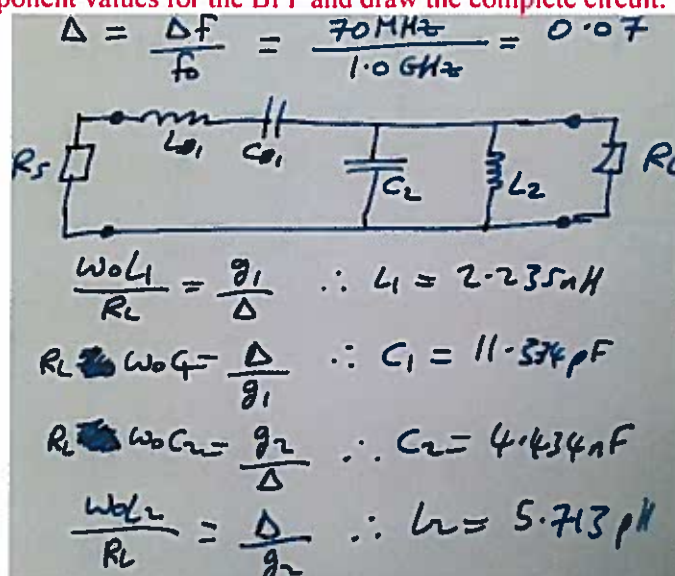 ponent values for the BPF and draw the complete circuit.
Δ = Δf / f0 = 70 MHz / 1.0 GHz = 0.07
Rs L1 C1 C2 L2 RL
ω0L1 / RL = g1 / Δ ∴ L1 = 2.235nH
RL ω0C1 = Δ / g1 ∴ C1 = 11.334pF
RL ω0C2 = g2 / Δ ∴ C2 = 4.434nF
ω0L2 / RL = Δ / g2 ∴ L2 = 5.713pH